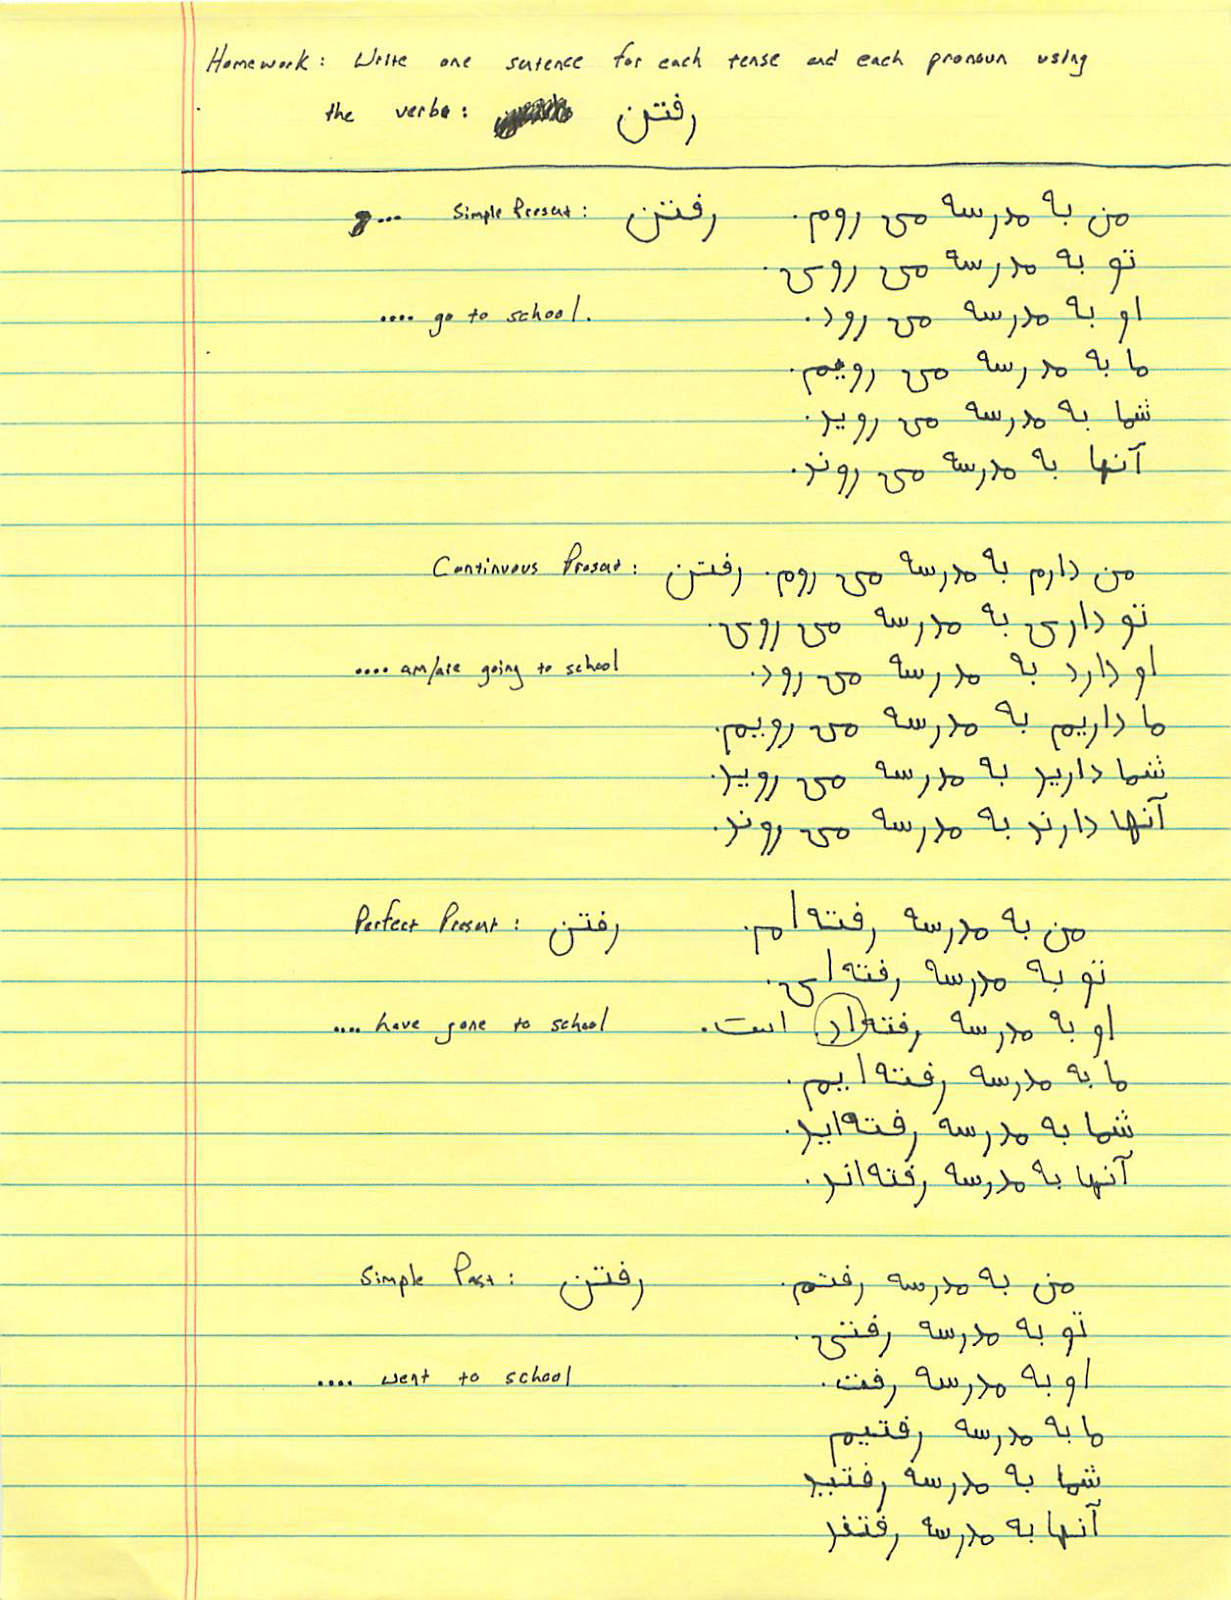 Homework: Write one sentence for each tense and each pronoun using
the verb: رفتن
Simple Present: رفتن من به مدرسه می روم.
تو به مدرسه می روی.
.... go to school. او به مدرسه می رود.
ما به مدرسه می رویم.
شما به مدرسه می روید.
آنها به مدرسه می روند.
Continuous Present: رفتن من دارم به مدرسه می روم.
تو داری به مدرسه می روی.
.... am/are going to school او دارد به مدرسه می رود.
ما داریم به مدرسه می رویم.
شما دارید به مدرسه می روید.
آنها دارند به مدرسه می روند.
Perfect Present: رفتن من به مدرسه رفته ام.
تو به مدرسه رفته ای.
.... have gone to school او به مدرسه رفته اد. است.
ما به مدرسه رفته ایم.
شما به مدرسه رفته اید.
آنها به مدرسه رفته اند.
Simple Past: رفتن من به مدرسه رفتم.
تو به مدرسه رفتی.
.... went to school او به مدرسه رفت.
ما به مدرسه رفتیم
شما به مدرسه رفتید
آنها به مدرسه رفتند